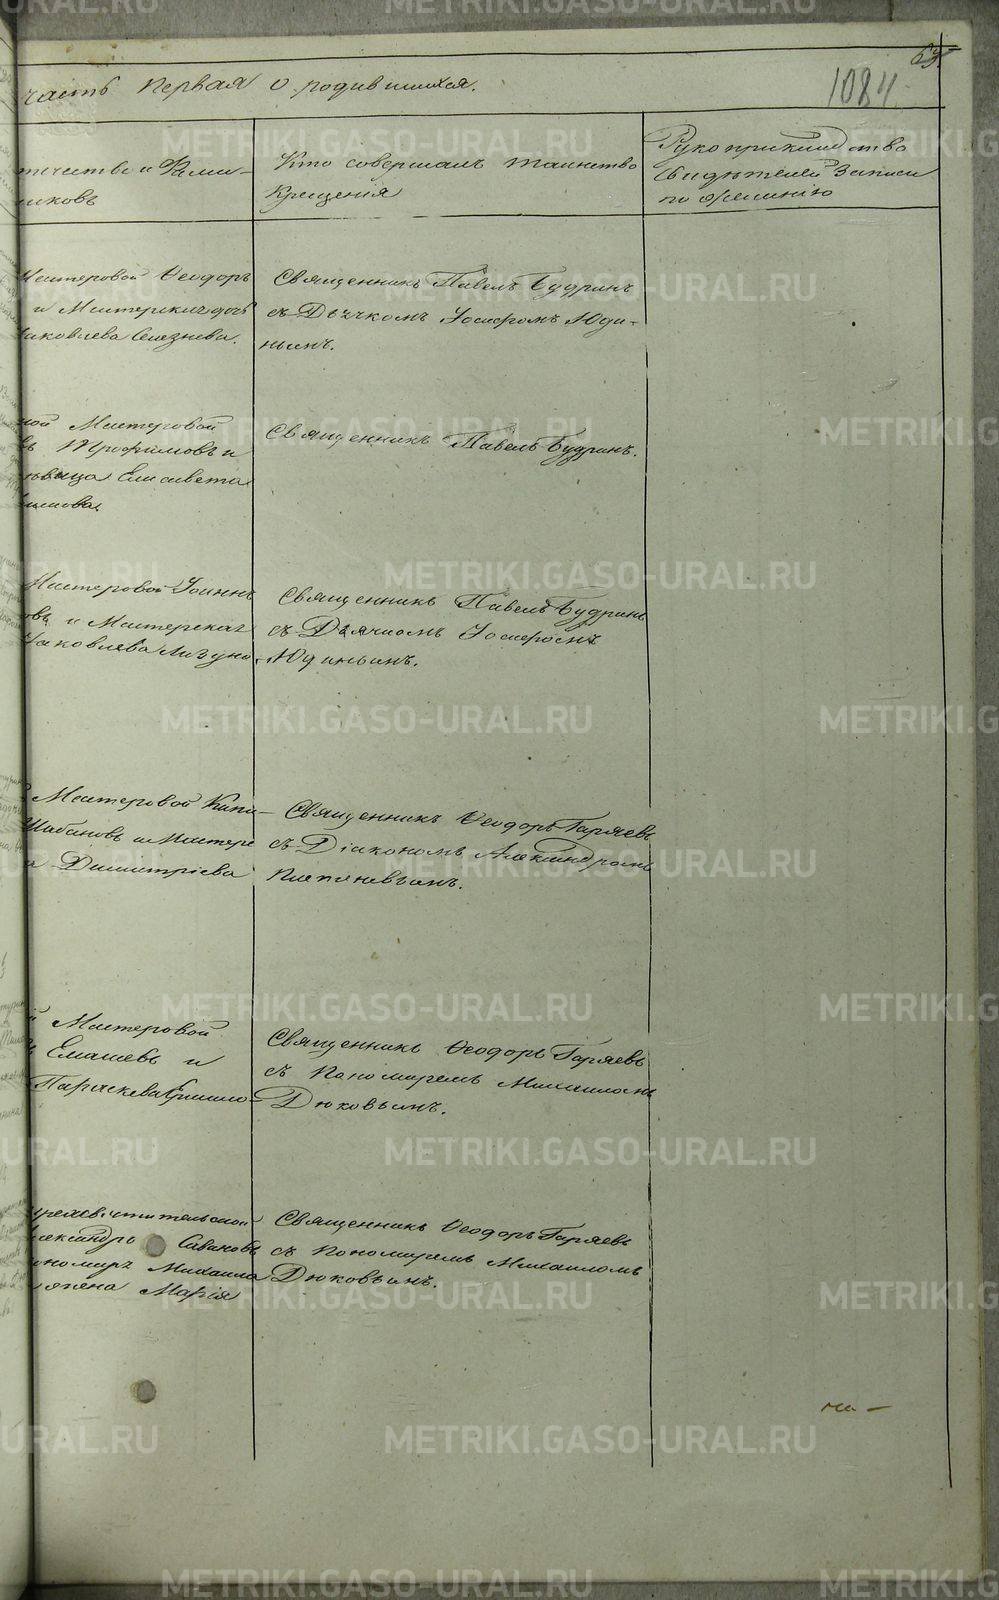 63.
1084.
часть первая о родившихся.
течество и Фами-
никовъ
Кто совершалъ таинство
Крещенія
Рукоприкладство
Свидѣтелей записи
по желанію
Мастеровой Ѳеодоръ
и Мастерскаго дочь
Яковлева Селезнева.
Священникъ Павелъ Будринъ
съ Дьячкомъ Іосифомъ Юди-
нымъ.
ной Мастеровой
ъ Трофимовъ и
вица Елисавета
Священникъ Павелъ Будринъ.
Мастеровой Іоаннъ
овъ и Мастерская
Яковлева
Священникъ Павелъ Будринъ
съ Дьячкомъ Іосифомъ
Юдинымъ.
Мастеровой Капи-
Шабановъ и Мастерс
а Димитріева
Священникъ Ѳеодоръ Гаряевъ
съ Діакономъ Александромъ
й Мастеровой
ъ Емашевъ и
Параскева
Священникъ Ѳеодоръ Гаряевъ
съ Пономаремъ Михаиломъ
Дюковымъ.
лександръ Сивановъ
ономаря Михаила
Марія
Священникъ Ѳеодоръ Гаряевъ
съ Пономаремъ Михаиломъ
Дюковымъ.
METRIKI.GASO-URAL.RU